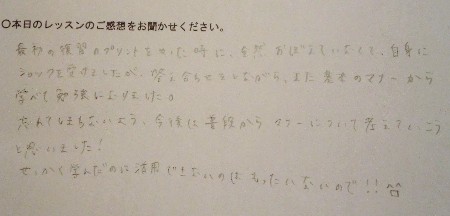 ○本日のレッスンのご感想をお聞かせください。
最初の復習のプリントをやった時に、全然おぼえていなくて、自身に
ショックを受けましたが、答え合わせをしながら、また基本のマナーから
学べて勉強になりました。
忘れてしまわないよう、今後は普段からマナーについて考えていこう
と思いました!
せっかく学んだのに活用できないのはもったいないので!!^^